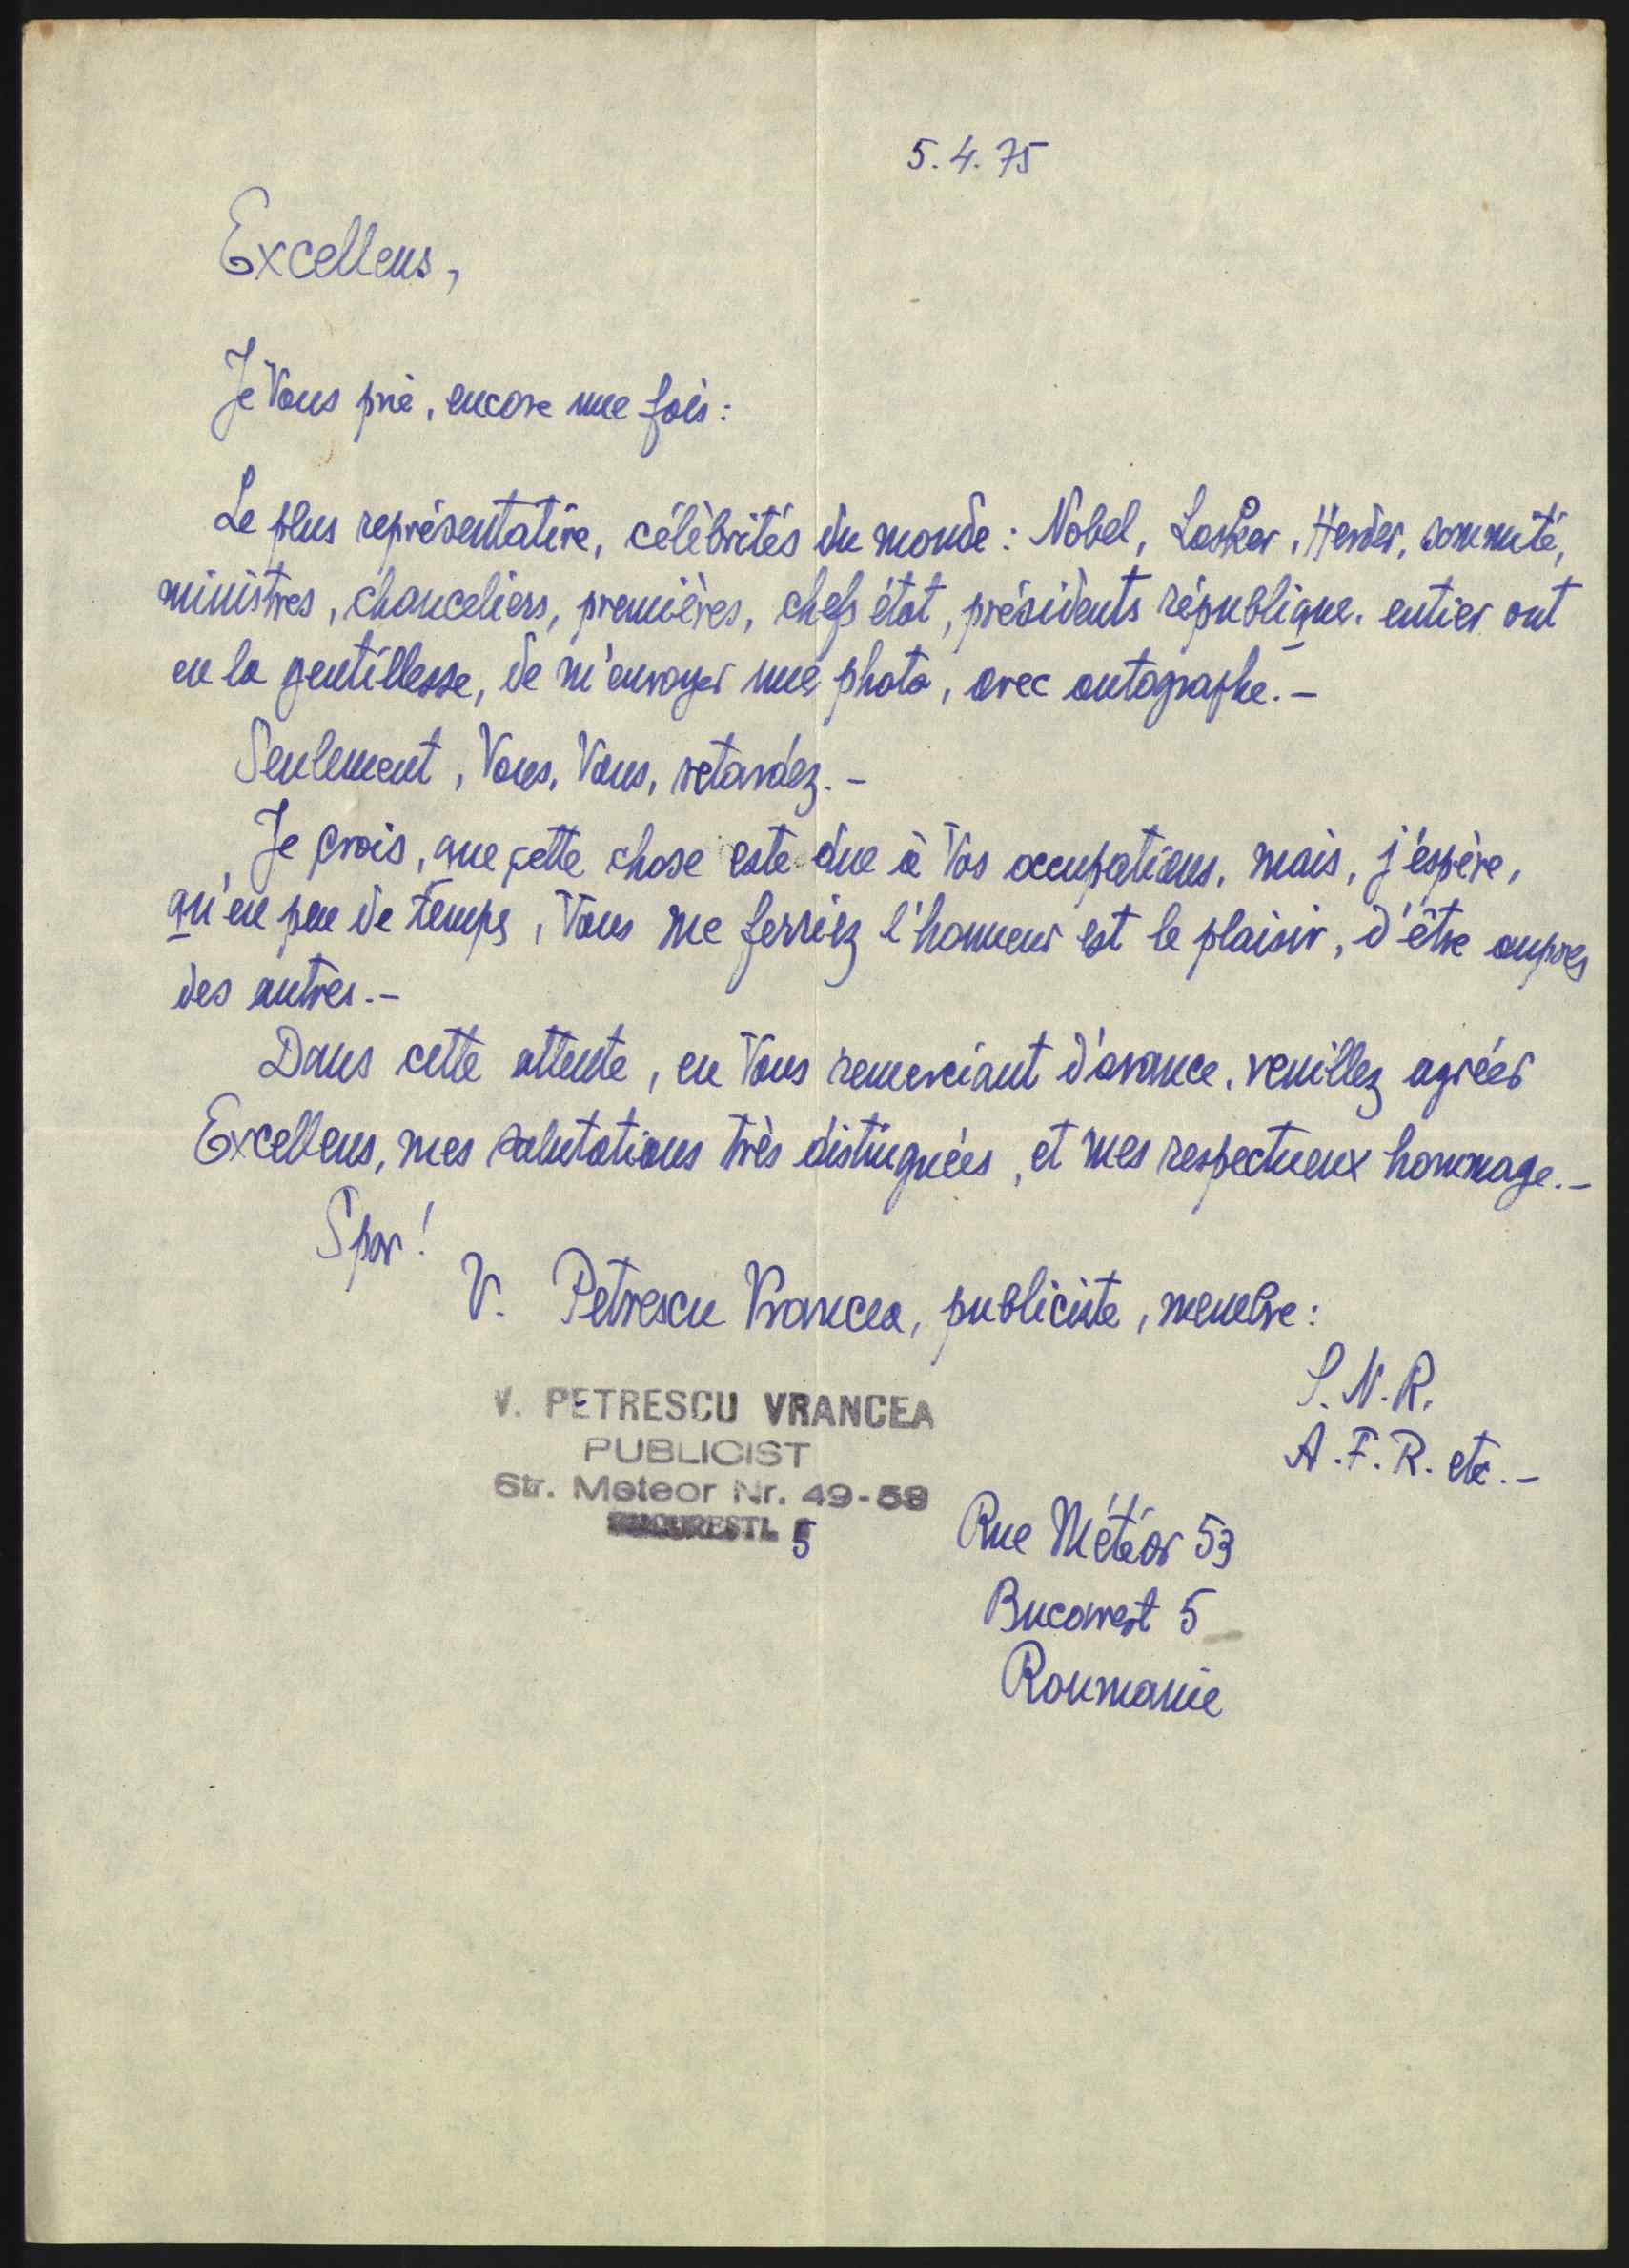 5.4.75
Excellens,
Je Vous prie, encore une fois:
Le plus représentative, célèbrités du monde: Nobel, Lasker, Herder, sommité,
ministres, chanceliers, premières, chefs état, présidents république. entier ont
eu la gentillesse, de m'envoyer une photo, avec autographe.-
Seulement, Vous, Vous, retardez.-
Je crois, que cette chose este due à Vos occupations, mais, j'éspère,
qu'en peu de temps, Vous me ferriez l'honneur est le plaisir, d'être aupres
des autres.-
Dans cette attente, en Vous remerciant d'avance, veuillez agréer
Excellens, mes salutations très distinguées, et mes respectueux hommage.-
V. Petrescu Vrancea, publiciste, membre:
S.N.R.
A.F.R. etc.-
V. PETRESCU VRANCEA
PUBLICIST
Str. Meteor Nr. 49-53
BUCURESTI 5
Rue Météor 53
Bucarest 5
Roumanie